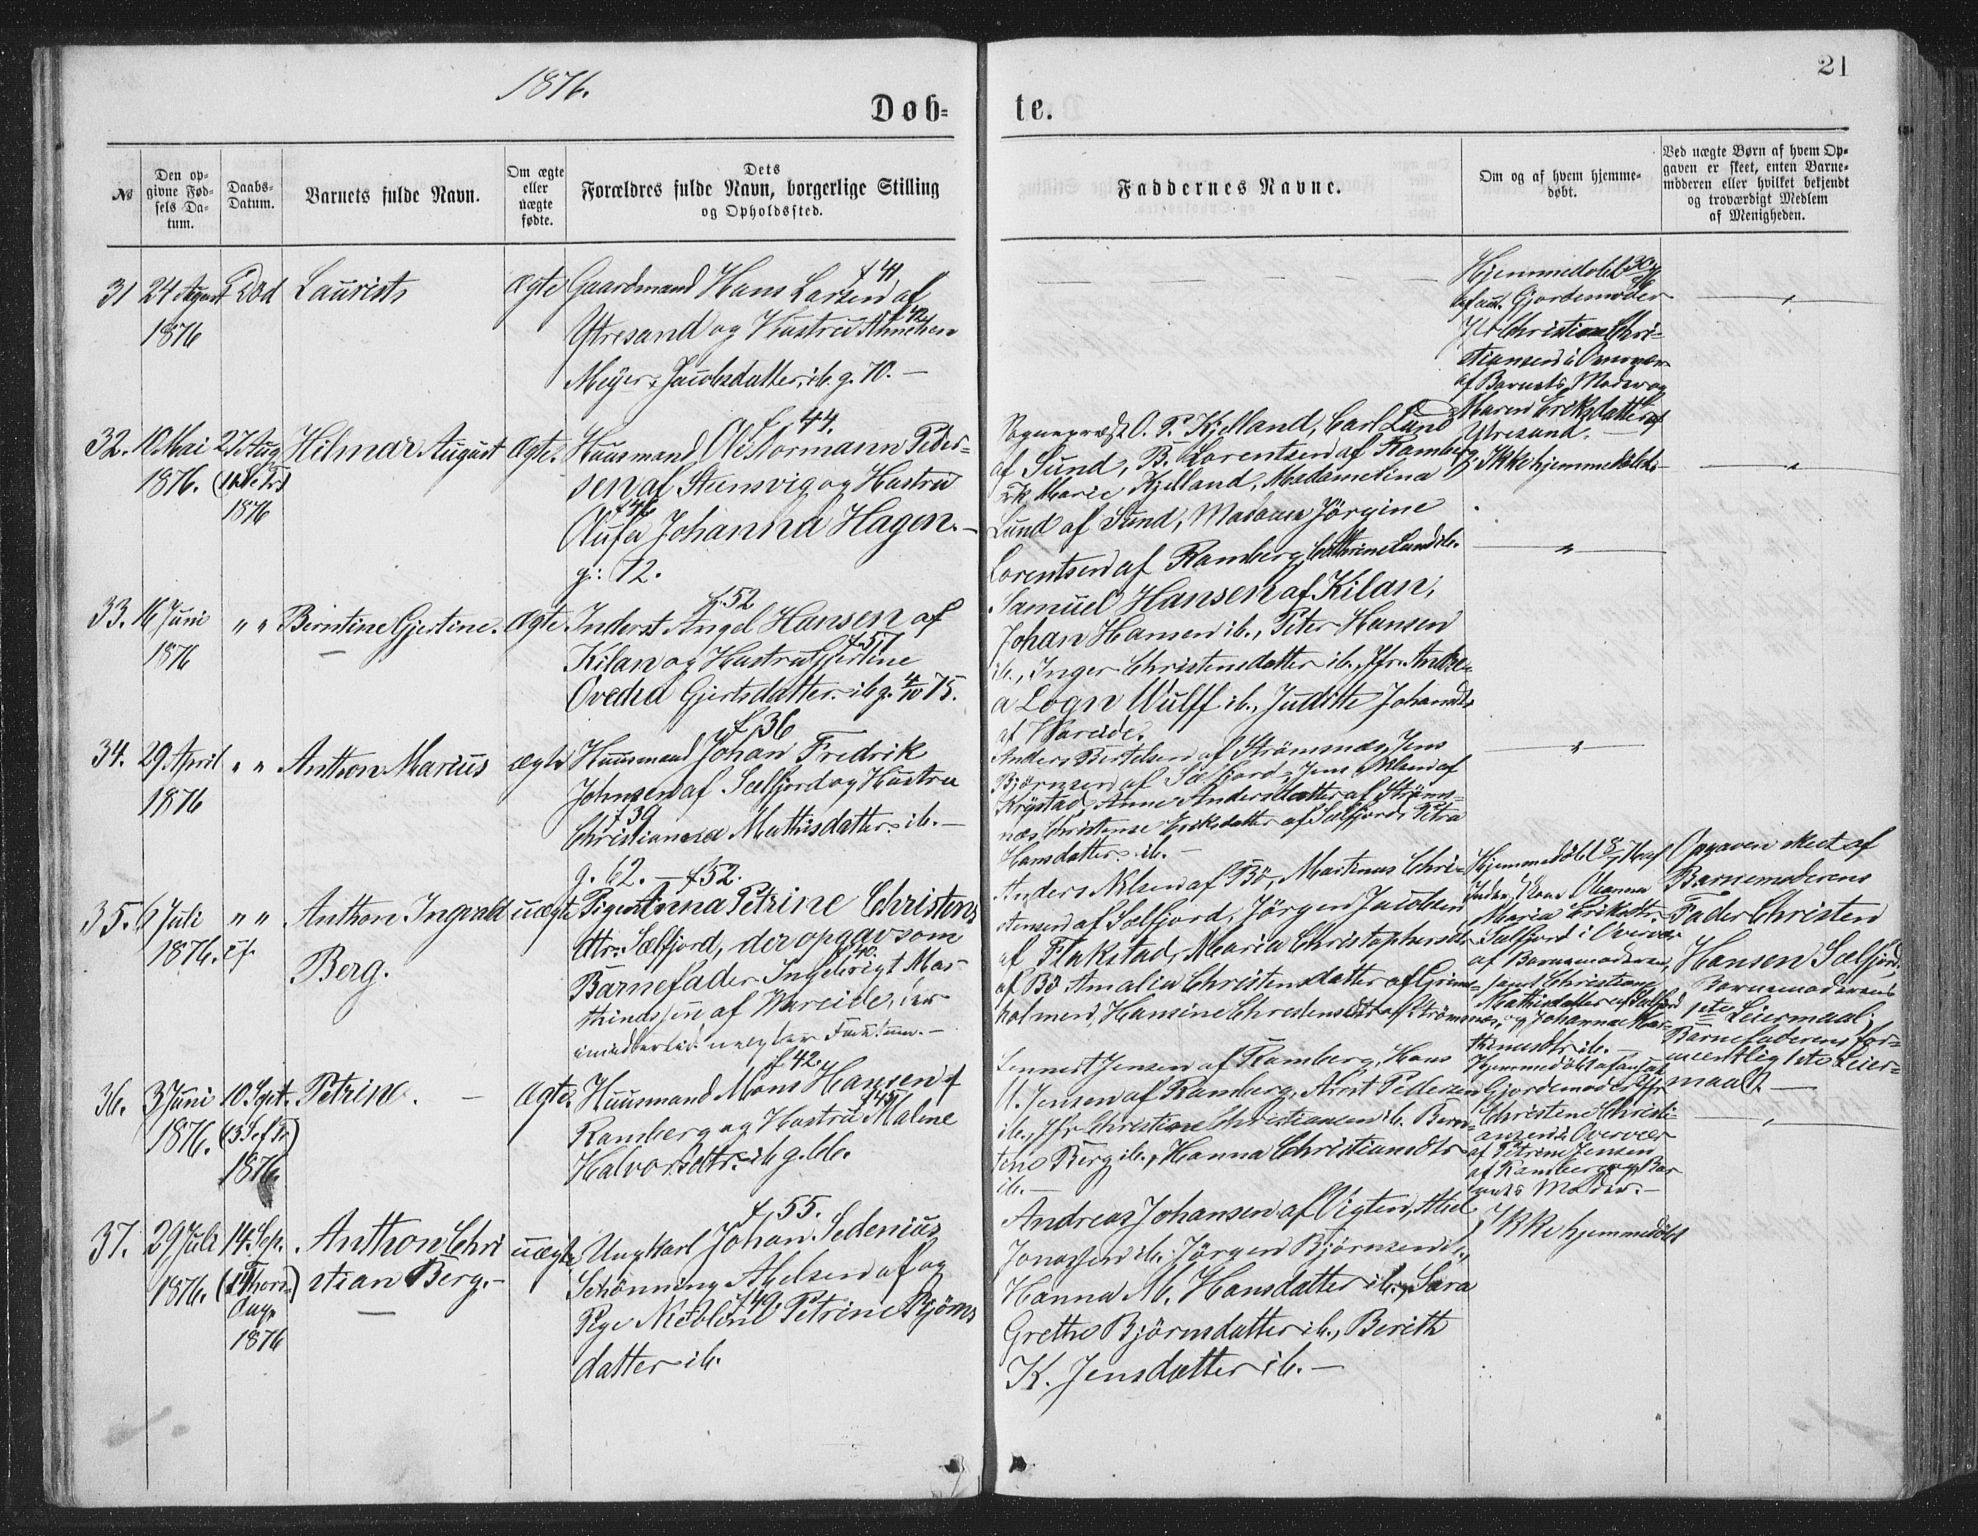 1876.
21
Døb-
te.
№
Den op-
givne Fød-
sels Da-
tum.
Daabs-
Datum.
Barnets fulde Navn.
Om ægte
eller
uægte
fødte.
Dets
Forældres fulde Navn, borgerlige Stilling
og Opholdssted.
Faddernes Navne.
Om og af hvem hjemme-
døbt.
Ved uægte Børn af hvem Op-
gaven er skeet, enten Barne-
moderen eller hvilket bekjendt
og troværdigt Medlem
af Menigheden.
31
24 August
1876
Død
Laurits
Ægte
f 41
Gaardmand Hans Larsen af
f 42
Ytresand og Hustru
Meyer Jacobsdatter, ib. g. 70. —
Hjemmedøbt 30/8 76
af ex. Gjordemoder
Jfr Christine Chri-
stiansen i Overvær
af Barnets Moder og
Maren Eriksdatter af
Ytresand. —
32.
10 Mai
1876.
27 Aug
1876
Hilmar August
Ægte.
f 44.
Huusmand Ole Normann Peder-
sen af Steinsvig og Hustru
f 46
Olufa Johanna Hagen. —
g.: 72.
Sognepræst O. P. Kjelland, Carl Lund
af Sund, B. Lorentsen af Ramberg,
Marie Kjelland, Madame Lina
Lund af Sund, Madame Jörgine
Lorentsen af Ramberg, Cathrine Lund ib.
Ikke hjemmedøbt.
33.
16 Juni
1876
" "
Berntine Gjertine.
Ægte
f. 52
Inderst Angel Hansen af
f. 57
Kilan og Hustru Gjertine
Ovedia Gjertsdatter. ib g. 4/10 75.
Samuel Hansen af Kilan,
Johan Hansen ib., Peter Hansen
ib., Inger Christensdatter ib., Jfr. Andre-
a Logn Wulff ib., Judithe Johansdtr.
af Vareide.
34.
29 April
1876
" "
Anthon Marius
ægte
f 36
Huusmand Johan Fredrik
Johnsen af Sælfjord og Hustru
f 39
Christianna Mathisdatter. ib. —
g. 62. —
Anders Bertelsen af Strömsnæs, Jens
Björnsen af Sælfjord, Jens Olsen af
Krystad, Anne Andersdatter af Ströms-
næs, Christense Eriksdatter af Sælfjord, Petra
Hansdatter. ib. —
35.
6 Juli
1876.
" "
Anthon Ingvald
Berg.
uægte
f 52.
Pigen Anna Petrine Christens
dtr. Sælfjord, der opgav som
f 40.
Barnefader Ingebrigt Mar-
thinussen af Vareide, der
imidlertid negter
Anders Nilsen af Bö, Martinus Chri-
stensen af Sælfjord, Jörgen Jacobsen
af Flakstad, Maria Christophersdtr
af Bö Amalia Christensdatter af Grims-
holmen, Hansine Christensdtr af Strömsnæs.
Hjemmedøbt 8/7 76 af
Inder. Kone Oleanna
Maria Eriksdtr.
Sælfjord i Overvær
af Barnemoderen,
samt Christiane
Mathisdatter af Sælfjord
og Johanna Mar-
thinusdtr ib. —
Opgaven skeet af
Barnemoderens
Fader Christen
Hansen Sælfjord.
Barnemoderens
1ste Leiermaal;
Barnefaderens for-
meentlig 1ste Leier-
maal. —
36.
3 Juni
1876.
10 Sept.
1876.
Petrine. —
Ægte.
f 42.
Huusmand Mons Hansen af
f 45
Ramberg og Hustru Malene
Halvorsdtr. ib g. 66.
Lennert Jensen af Ramberg, Hans
M. Jensen af Ramberg, Arnt Pedersen
ib., Jfr Christine Christiansen ib. Bern-
tine Berg ib., Hanna Christiansdtr
ib. —
Hjemmedøbt af
Gjordemoder Jfr
Christine Christi-
ansen i Overvær
af Petrine Jensen
af Ramberg og Bar-
nets Moder. —
37.
29 Juli
1876.
14. Sep.
1876
Anthon Chri
stian Berg. —
uægte
f 55.
Ungkarl Johan Sedenius
Schönning Axelsen af og
f 49.
Pige Nicoline Petrine Björns
datter ib.
Andreas Johansen af Vigten, Axel
Jonassen ib. Jörgen Björnsen ib.,
Hanna M. Hansdatter ib., Sara
Grethe Björnsdatter ib., Berith
K. Jensdatter ib. —
Ikke hjemmedøbt